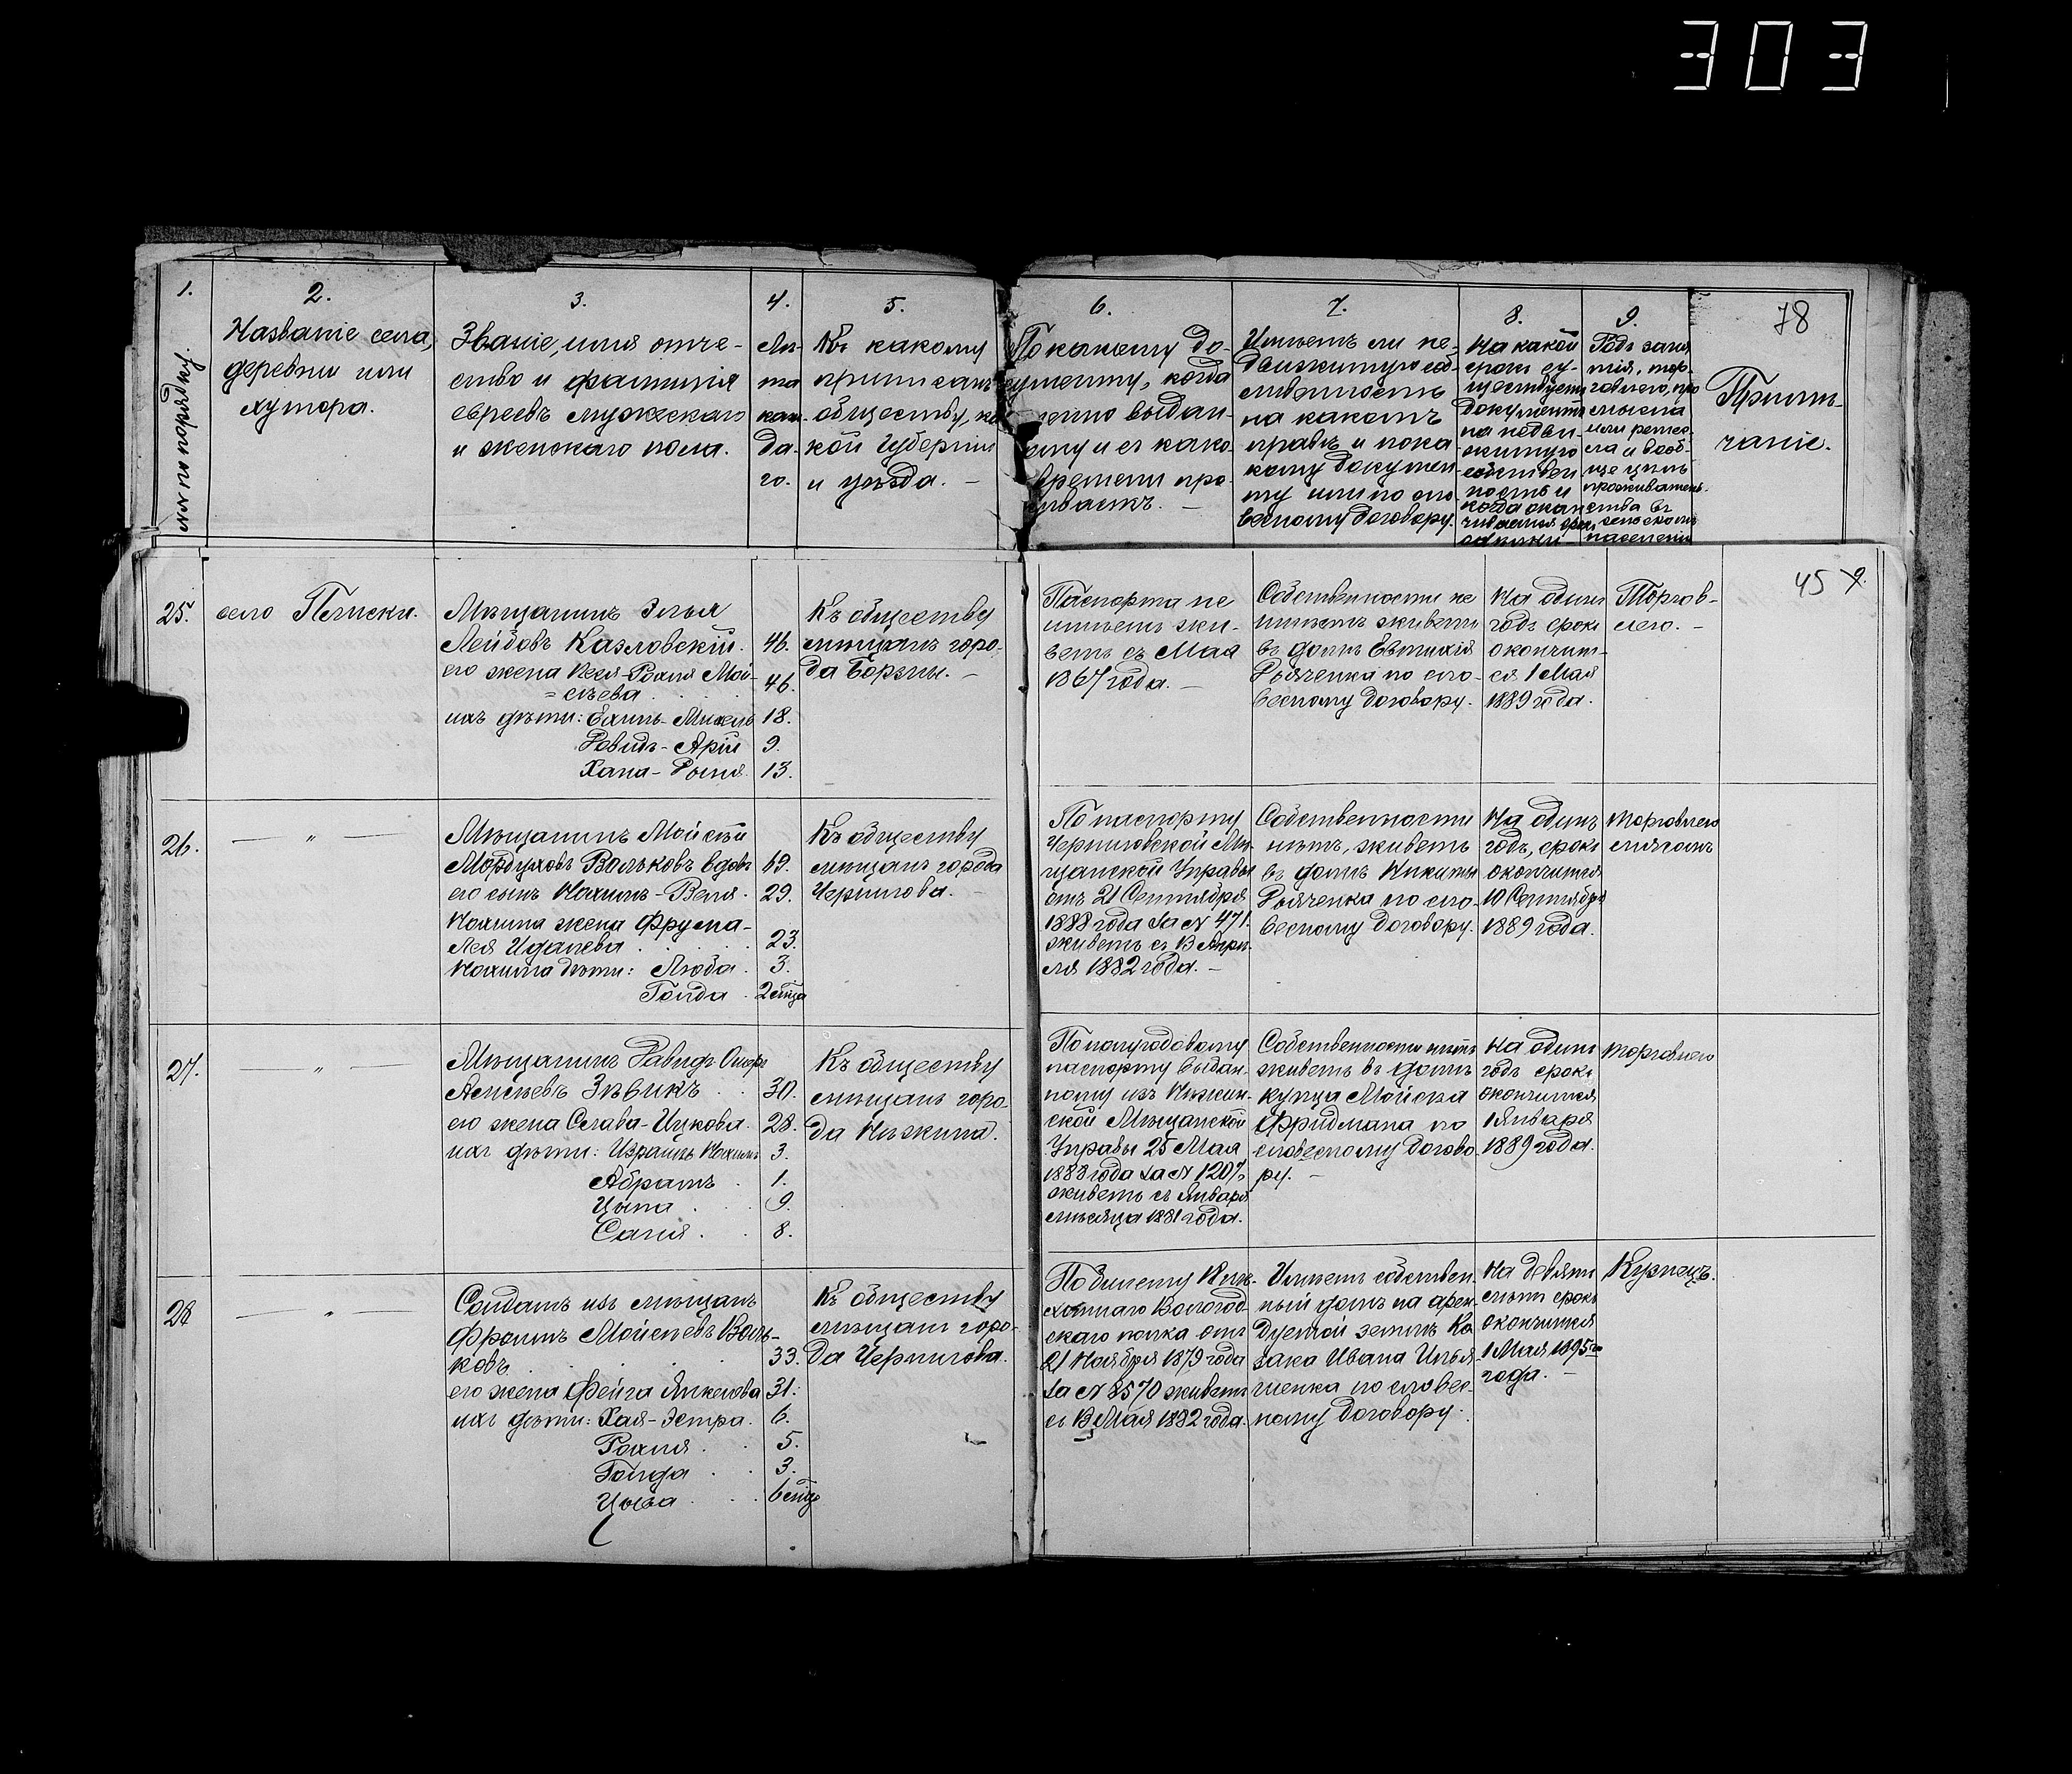 303
1.
№№ по порядку.
2.
Названіе села,
деревни или
хутора.
3.
Званіе, имя отче-
ство и фамилія
евреевъ мужескаго
и женскаго пола.
4.
Лѣ-
та
каж-
да-
го.
5.
Къ какому
приписанъ
обществу, ка
кой губерніи
и уѣзда. —
6.
По какому до-
кументу, когда
выдан-
ому и съ како
времени про
живаетъ. —
7.
Имѣетъ ли не-
движимую соб
ственность
на какомъ
правѣ и пока
кому докумен
ту или по сло
весному договору.
8.
На какой
срокъ су-
ществуетъ
документъ
на недви-
жимую
собствен
ность и
когда окан
чивается срок
9.
Родъ заня
тія, тор-
говлею, про
мысла
или ремес
ла и вооб-
ще цѣль
проживатель
ства въ
сельскомъ
населеніи
78
Примѣ-
чаніе.
45
25.
село Пѣтски.
Мѣщанинъ Элья
Лейбовъ Казловскій. 46.
его жена Песя-Рохля Мой-
=сѣева 46.
ихъ дѣти: Ехиль-Михель 18.
Довидъ-Арій 9.
Хана-Рыся 13.
Къ обществу
мѣщанъ горо-
да Борзны. —
Паспорта не
имѣетъ жи-
ветъ съ Мая
1867 года. —
Собственности не
имѣетъ живетъ
въ домѣ Евтихія
Дьяченка по сло-
весному договору.
На одинъ
годъ срокъ
окончит-
ся 1 Мая
1889 года.
Торгов-
лею. —
26.
— " —
Мѣщанинъ Мойсѣй
Мордуховъ Вольковъ вдовъ 69.
его сынъ Нохимъ-Веля. 29.
Нохима жена Фрума-
Лея Иданева 23.
Нохима дѣти: Люба. 3.
Голда. 2 м̃ца
Къ обществу
мѣщанъ города
Чернигова. —
По паспорту
Черниговской Мѣ-
щанской Управы
отъ 21 Сентября
1888 года за № 471.
живетъ съ 13 Апрѣ-
ля 1882 года. —
Собственности
нѣтъ, живетъ
въ домѣ Никиты
Дьяченка по сло-
весному договору.
На одинъ
годъ, срокъ
окончится
10 Сентября
1889 года.
торговлею
27.
— " —
Мѣщанинъ Давидъ Ошеръ
Зѣвикъ 30.
его жена Слава-Ицкова. 28.
ихъ дѣти: Израиль Нохимъ 3.
Абрамъ 1.
Ципа 9.
Сася. 8.
Къ обществу
мѣщанъ горо-
да Нѣжина.
По полугодовому
паспорту выдан-
ному изъ Нѣжин-
ской Мѣщанской
Управы 25 Мая
1888 года за № 1207,
живетъ съ Января
мѣсяца 1881 года.
Собственности нѣтъ
живетъ въ домѣ
купца Мойсѣя
Фридмана по
словесному догово
ру. —
На одинъ
годъ срокъ
окончится
1 Января
1889 года.
торговлею
28
— " —
Солдатъ изъ мѣщанъ
Фроимъ Мойсеевъ Воль-
ковъ 33.
его жена Фейга Янкелова 31.
ихъ дѣти: Хая-Эстра. 6.
Рохля. 5.
Голда 3.
Цыва 6 м̃ц
Къ обществу
мѣщанъ горо-
да Чернигова.
По билету Пѣ-
хотнаго Вологод
скаго полка отъ
21 Ноября 1879 года
за № 8570 живетъ
съ 13 Мая 1882 года.
Имѣетъ собствен
ный домъ на арен
дуемой землѣ Ка
зака Ивана Илья
шенка по словес-
ному договору.
На девять
лѣтъ срокъ
окончится
1 Мая 1895 го
года. —
Кузнецъ.